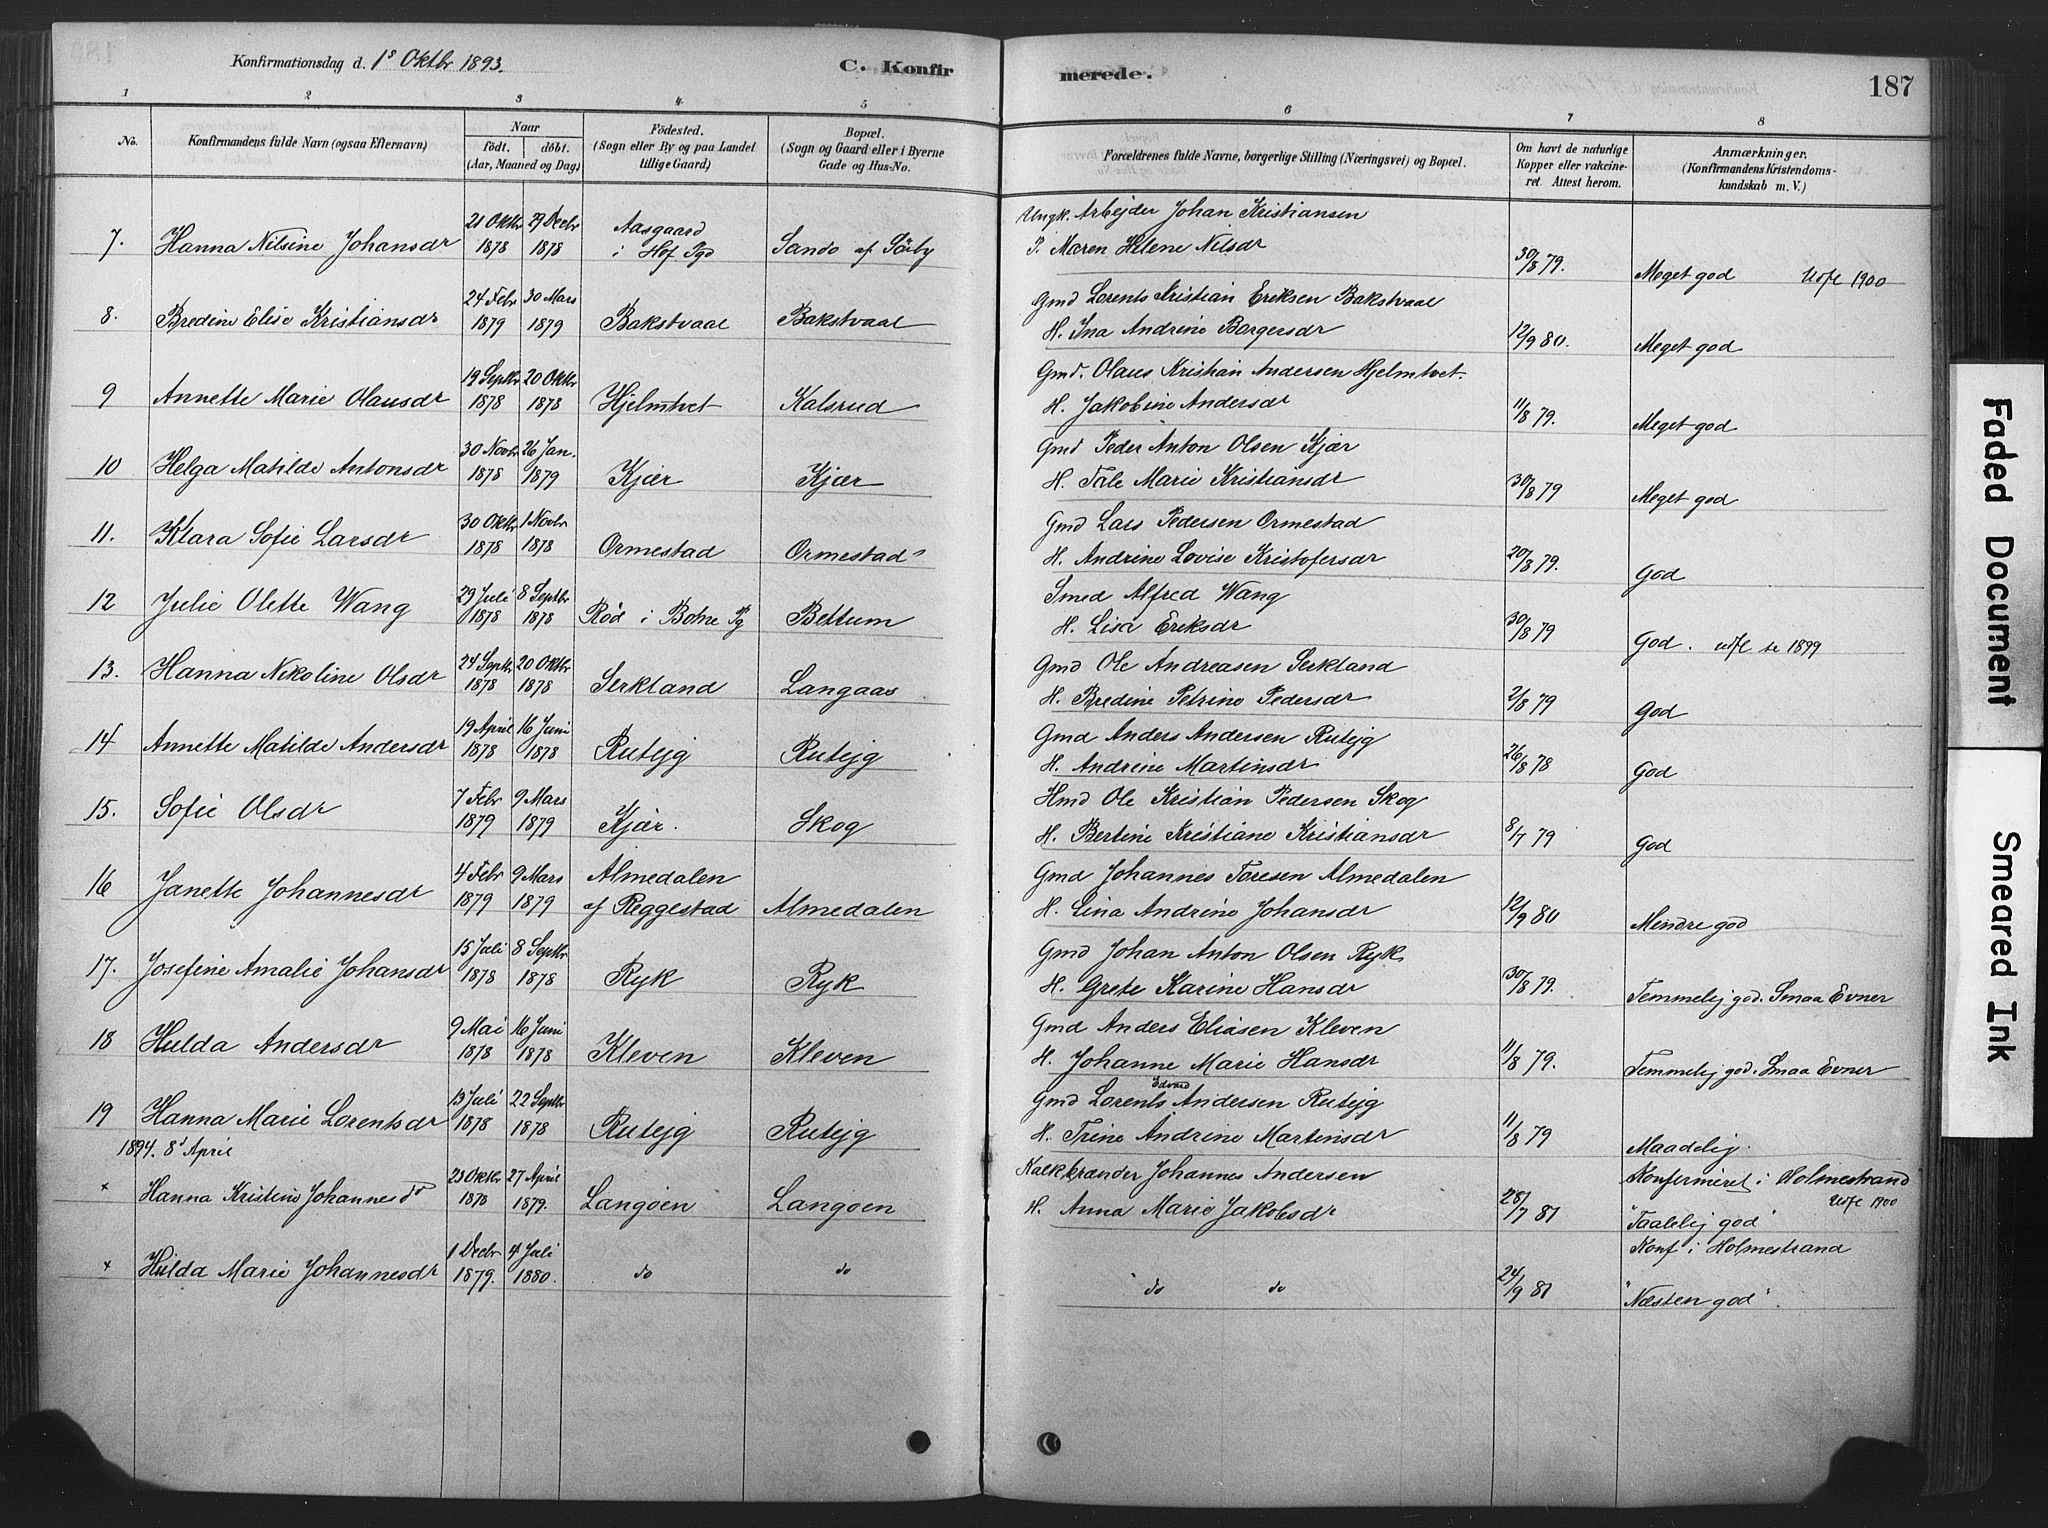 Konfirmationsdag d. 1s Oktbr 1893.
C. Konfirmerede.
187
1 2 3 4 5 6 7 8
No.
Konfirmandens fulde Navn (ogsaa Efternavn)
Naar
født. døbt.
(Aar, Maaned og Dag)
Fødested.
(Sogn eller By og paa Landet
tillige Gaard)
Bopæl.
(Sogn og Gaard eller i Byerne
Gade og Hus-No.
Forældrenes fulde Navne, borgerlige Stilling (Næringsvei) og Bopæl.
Om havt de naturlige
Kopper eller vakcine-
ret. Attest herom.
Anmærkninger.
(Konfirmandens Kristendoms-
kundskab m. V.)
7. Hanna Nilsine Johansdr 21 Oktbr 1878 29 Decbr 1878 Aasgaard i Hof Pgd Sando af Sörby
Ungk. Arbejder Johan Kristiansen
P. Maren Helene Nilsdr 30/8 79. Meget god Udfl 1900
8. Bredine Elise Kristiansdr 24 Febr 1879 30 Mars 1879 Bakstvaal Bakstvaal
Gmd Lorents Kristian Eriksen Bakstvaal
H. Ina Andrine Borgersdr 12/9 80. Meget god
9 Annette Marie Olausdr 19 Septbr 1878 20 Oktbr 1878 Hjelmtvet Kalsrud
Gmd. Olaus Kristian Andersen Hjelmtvet.
H. Jakobine Andersdr 11/8 79. Meget god
10 Helga Matilde Antonsdr 30 Novbr 1878 26 Jan. 1879 Kjær Kjær
Gmd Peder Anton Olsen Kjær
H. Tale Marie Kristiansdr 30/8 79 Meget god
11. Klara Sofie Larsdr 30 Oktbr 1878 1 Novbr 1878 Ormestad Ormestad
Gmd Lars Pedersen Ormestad
H. Andrine Lovise Kristofersdr 20/8 79. God
12 Julie Olette Wang 29 Juli 1878 8 Septbr 1878 Rød i Botne Pg Bettum
Smed Alfred Wang
H. Lisa Eriksdr 30/8 79 God. udfl se 1899
13. Hanna Nikoline Olsdr 24 Septbr 1878 20 Oktbr 1878 Serkland Langaas
Gmd Ole Andreasen Serkland
H. Bredine Petrine Pedersdr 2/8 79 God
14 Annette Matilde Andersdr 19 April 1878 16 Juni 1878 Rutejg Rutejg
Gmd Anders Andersen Rutejg
H. Andrine Martinsdr 26/8 78 God
15. Sofie Olsdr 7 Febr 1879 9 Mars 1879 Kjær. Skog
Hmd Ole Kristian Pedersen Skog
H. Bertine Kristiane Kristiansdr 8/7 79 God
16 Janette Johannesdr 4 Febr 1879 9 Mars 1879 Almedalen af Reggestad Almedalen
Gmd Johannes Toresen Almedalen
H. Lina Andrine Johansdr 12/9 80 Mendre god
17. Josefine Amalie Johansdr 15 Juli 1878 8 Septbr 1878 Ryk Ryk
Gmd Johan Anton Olsen Ryk
H. Grete Karine Hansdr 30/8 79. Temmelig god. Smaa Evner
18 Hulda Andersdr 9 Mai 1878 16 Juni 1878 Kleven Kleven
Gmd Anders Eliasen Kleven
H. Johanne Marie Hansdr 11/8 79. Temmelig god. Smaa Evner
19 Hanna Marie Lorentsdr 13 Juli 1878 22 Septbr 1878 Rutejg Rutejg
Gmd Lorents Edvard Andersen Rutejg
H. Trine Andrine Martinsdr 11/8 79 Maadelig.
1894. 8d April
x Hanna Kristine Johannesdr 23 Oktbr 1878 27 April 1879. Langöen Langöen
Kalkbrænder Johannes Andersen Konfermeret i Holmestrand
H. Anna Marie Jakobsdr 28/7 81 "Taalelig god" Udfl 1900
x Hulda Marie Johannesdr 1 Decbr 1879. 4 Juli 1880. do do
do do 24/9 81 Konf i Holmestrand
"Næsten god".
Faded Document
Smeared Ink